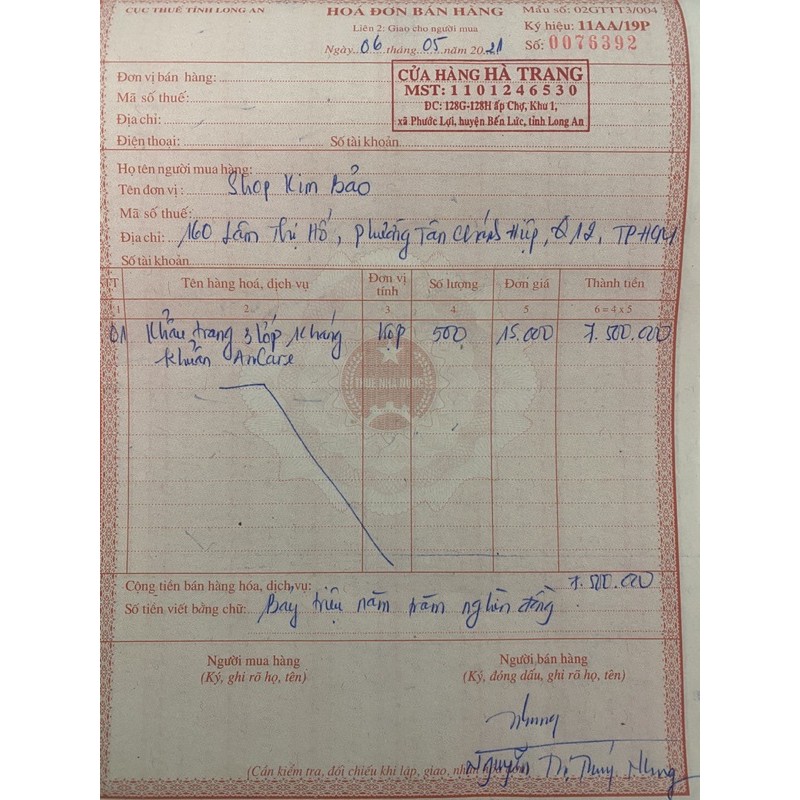 CỤC THUẾ TỈNH LONG AN
HOÁ ĐƠN BÁN HÀNG
Mẫu số: 02GTTT3/004
Liên 2: Giao cho người mua
Ký hiệu: 11AA/19P
Ngày 06 tháng 05 năm 2021
Số: 0076392
Đơn vị bán hàng:
Mã số thuế:
Địa chỉ:
Điện thoại: Số tài khoản
CỬA HÀNG HÀ TRANG
MST: 1101246530
ĐC: 128G-128H ấp Chợ, Khu 1,
xã Phước Lợi, huyện Bến Lức, tỉnh Long An
Họ tên người mua hàng:
Tên đơn vị: Shop Kim Bảo
Mã số thuế:
Địa chỉ: 160 Lâm Thị Hố, phường Tân Chánh Hiệp, Q12, TPHCM
Số tài khoản
TT Tên hàng hoá, dịch vụ Đơn vị tính Số lượng Đơn giá Thành tiền
1 2 3 4 5 6 = 4 x 5
01 Khẩu trang 3 lớp kháng Hộp 500 15.000 7.500.000
khuẩn AnCare
THUẾ NHÀ NƯỚC
Cộng tiền bán hàng hóa, dịch vụ: 7.500.000
Số tiền viết bằng chữ: Bảy triệu năm trăm nghìn đồng
Người mua hàng Người bán hàng
(Ký, ghi rõ họ, tên) (Ký, đóng dấu, ghi rõ họ, tên)
Nhung
Nguyễn Thị Thúy Nhung
(Cần kiểm tra, đối chiếu khi lập, giao, nhận